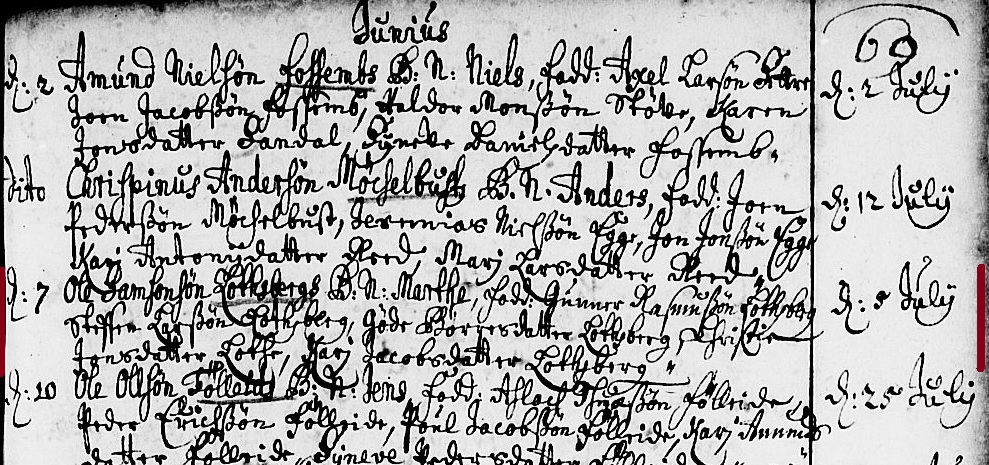 Junius
69
d: 2 Amund Nielsön Fossembs B: N: Niels, fadd: Axel Larsön d: 2 Julÿ
Joen Jacobsön Fossemb, Haldor Monsön Støve, Karen
Jonsdatter Sandal, Syneve Danielsdatter Fossemb.
Dito Chrispinus Andersön Möchelbust B. N. Anders, fadd: Joen d: 12 Julÿ
Pedersön Möchelbust, Jeremias Nielsön Egge, Jon Jonsön Egge
Kari Antonisdatter Reed, Mari Larsdatter Reed
d: 7 Ole Samsonsön Lothsbergs B: N: Marthe, fadd: Gunner Rasmusön Lothsberg d: 5 Julÿ
Steffen Larsön Lothsberg, Göde Börgesdatter Lothsberg, Christie
Jonsdatter Lothe, Kari Jacobsdatter Lothsberg
d: 10 Ole Olsön Folleide B: N: Jens, fadd: Aslach Folleide d: 25 Julÿ
Peder Erichsön Folleide, Poul Jacobsön Folleide, Kari Amunds
datter Folleide, Syneve Pedersdatter